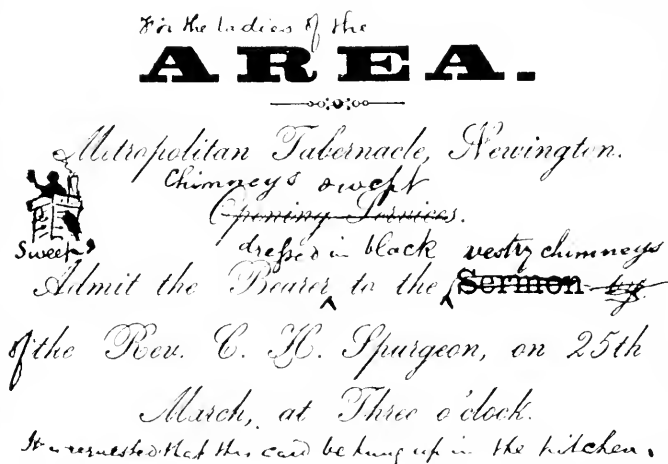 For the Ladies of the
AREA.
Metropolitan Tabernacle, Newington.
Chimneys swept
Opening Services.
Sweep
dressed in black vestry chimneys
Admit the Bearer to the Sermon by
of the Rev. C. H. Spurgeon, on 25th
March, at Three o'clock.
It is requested that this card be hung up in the kitchen.